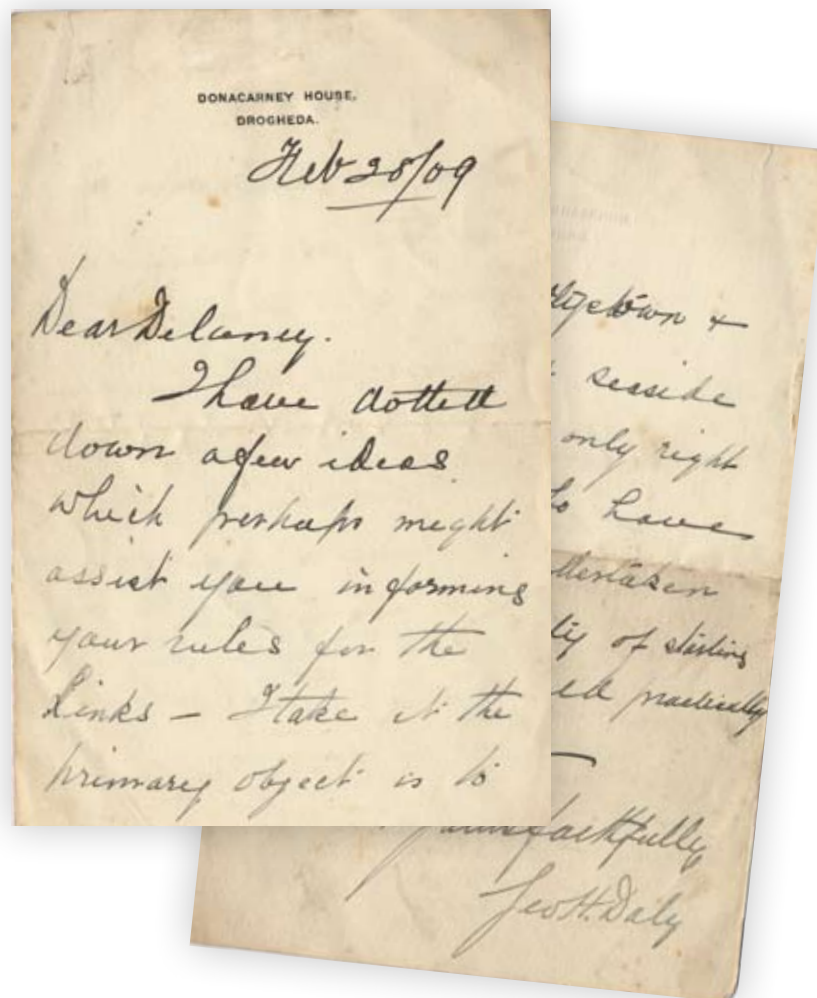 DONACARNEY HOUSE.
DROGHEDA.
Feb 28/09
Dear Delaney.
I have dotted
down a few ideas
which perhaps might
assist you in forming
your rules for the
Links — I take it the
primary object is to
&
seaside
only right
to have
of starting
practically
faithfully
Geo H. Daly